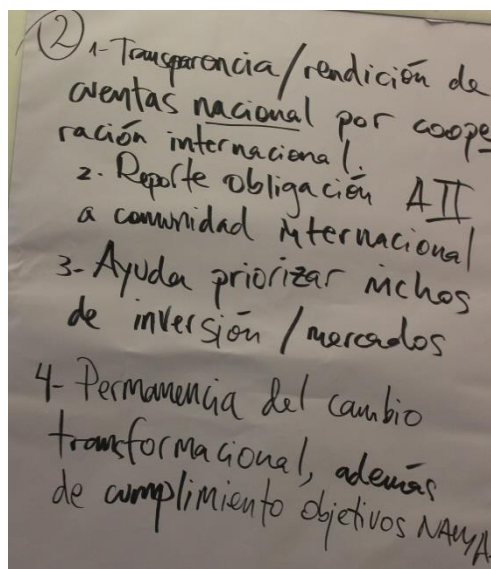 ② 1- Transparencia/rendición de
cuentas nacional por coope
ración internacional.
2. Reporte obligación AII
a comunidad internacional
3- Ayuda priorizar nichos
de inversión / mercados
4- Permanencia del cambio
transformacional, además
de cumplimiento objetivos NAMA.